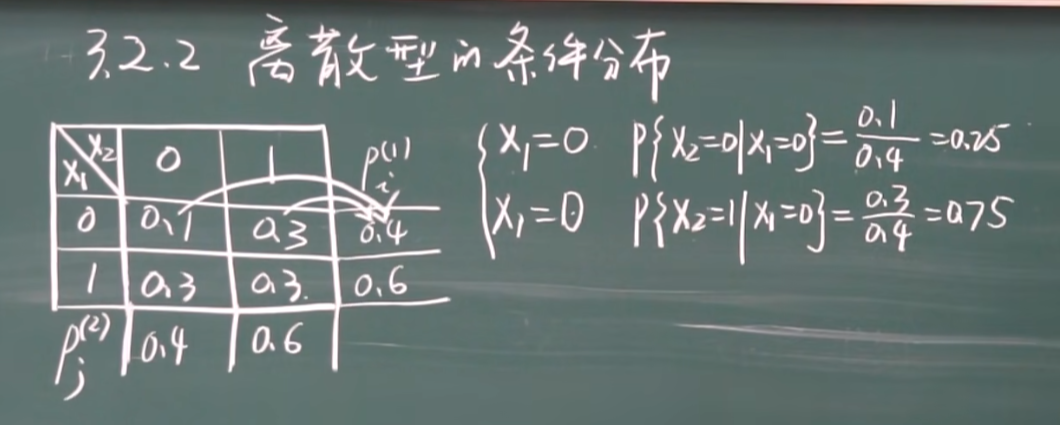 3.2.2 离散型的条件分布
X₁ X₂ 0 1 pᵢ⁽¹⁾
0 0.1 0.3 0.4
1 0.3 0.3 0.6
pⱼ⁽²⁾ 0.4 0.6
X₁=0 P{X₂=0|X₁=0}=0.1/0.4=0.25
X₁=0 P{X₂=1|X₁=0}=0.3/0.4=0.75